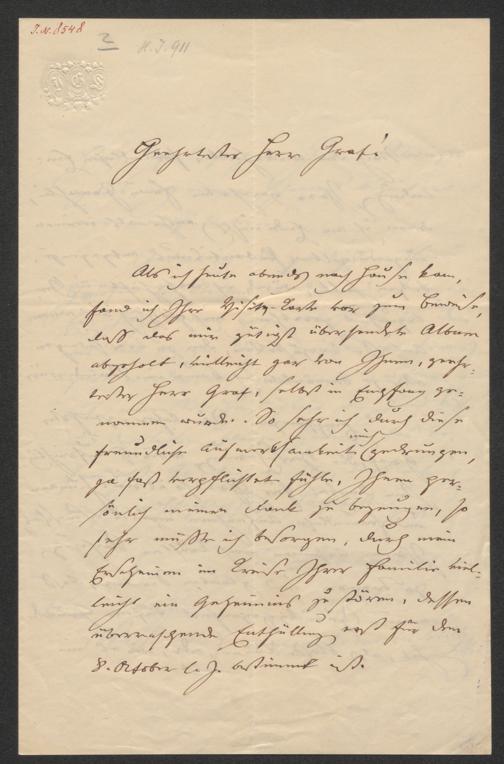 I.N. 8548
2
H.I. 911
Geehrtester Herr Graf!
Als ich heute abends nach Hause kam,
fand ich Ihre Visite-Karte vor zum Beweise,
daß das mir gütigst übersendete Album
abgeholt, vielleicht gar von Ihnen, geehr-
tester Herr Graf, selbst in Empfang ge-
nommen wurde. So sehr ich durch diese
freundliche Aufmerksamkeit mich gedrungen,
ja fast verpflichtet fühle, Ihnen per-
sönlich meinen Dank zu bezeugen, so
sehr mußte ich besorgen, durch mein
Erscheinen im Kreise Ihrer Familie viel-
leicht ein Geheimnis zu stören, dessen
überraschende Enthüllung erst für den
8. October l. J. bestimmt ist.